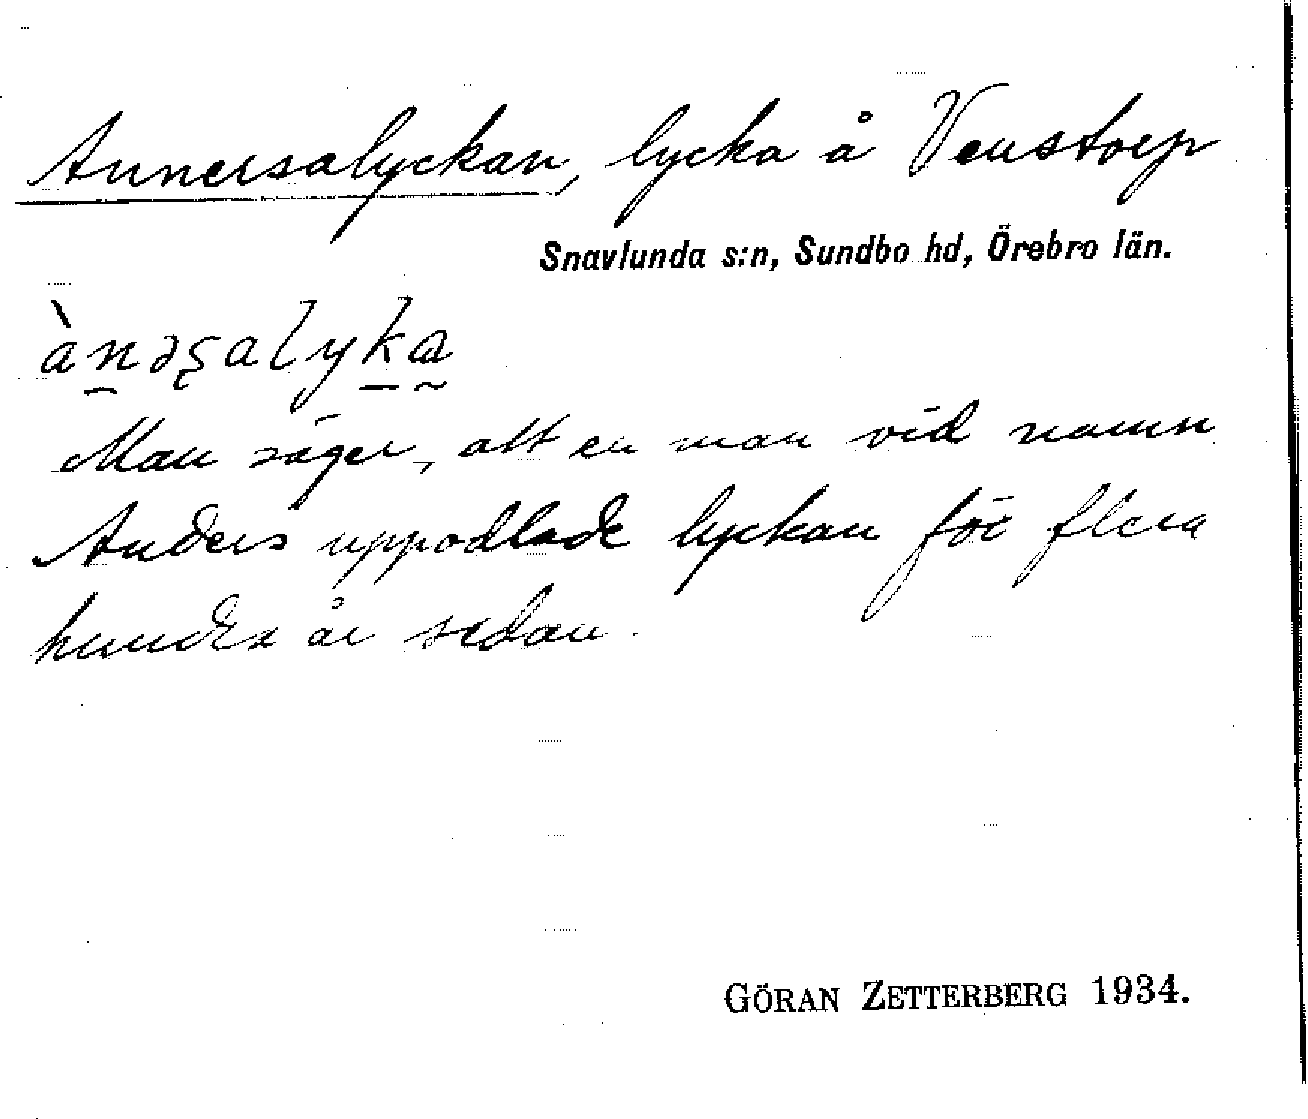 Annersalyckan, lycka å Venstorp
Snavlunda s:n, Sundbo hd, Örebro län.
àn̠əʂalyk̠a̰
Man säger, att en man vid namn
Anders uppodlade lyckan för flera
hundra år sedan.
GÖRAN ZETTERBERG 1934.